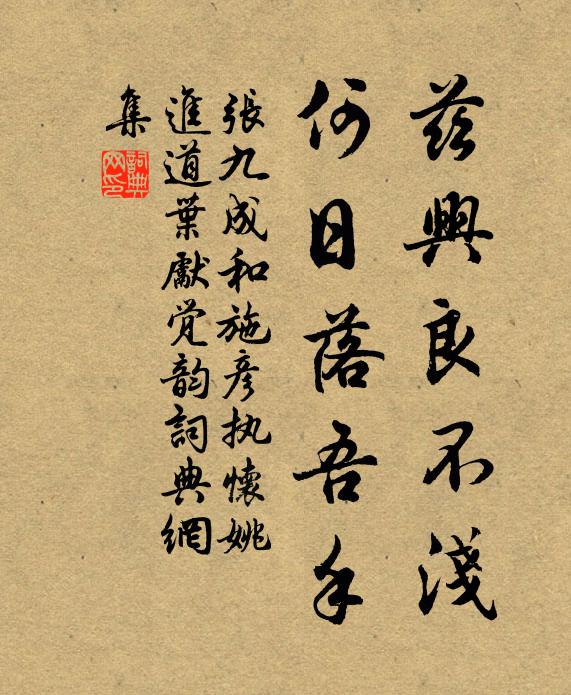 茲興良不淺
何日落吾手
張九成和施彦执懷姚
進道葉獻覚韵詞典網
集
詞典網印